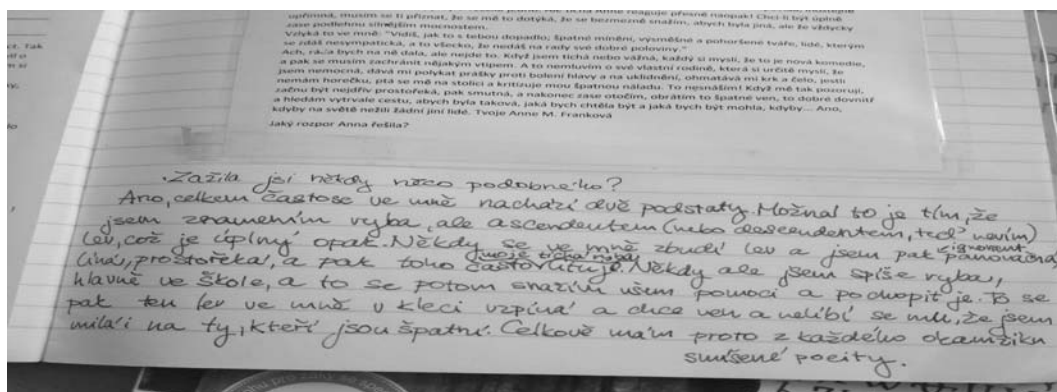 upřímná, musím se ti přiznat, že se mě to dotýká, že se bezmezně snažím, abych byla jiná, ale že vždycky
zase podlehnu silnějším mocnostem.
Vzlyká to ve mně: "Vidíš, jak to s tebou dopadlo, špatné mínění, výsměšné a pohoršené tváře, lidé, kterým
se zdáš nesympatická, a to všecko, že nedáš na rady své dobré poloviny."
Ach, ráda bych na ně dala, ale nejde to. Když jsem tichá nebo vážná, každý si myslí, že to je nová komedie,
a pak se musím zachránit nějakým vtipem. A to nemluvím o své vlastní rodině, která si určitě myslí, že
jsem nemocná, dává mi polykat prášky proti bolení hlavy a na uklidnění, ohmatává mi krk a čelo, jestli
nemám horečku, ptá se mě na stolici a kritizuje mou špatnou náladu. To nesnáším! Když mě tak pozorují,
začnu být nejdřív prostořeká, pak smutná, a nakonec zase otočím, obrátím to špatné ven, to dobré dovnitř
a hledám vytrvale cestu, abych byla taková, jaká bych chtěla být a jaká bych být mohla, kdyby... Ano,
kdyby na světě nežili žádní jiní lidé. Tvoje Anne M. Franková
Jaký rozpor Anna řešila?
. Zažila jsi někdy něco podobného?
Ano, celkem často se ve mně nachází dvě podstaty. Možná to je tím, že
jsem znamením ryba, ale ascendentem (nebo descendentem, teď nevím)
lev, což je úplný opak. Někdy se ve mně zbudí lev a jsem pak panovačná
ignorant
líná, prostořeká, a pak toho často lituje. Někdy ale jsem spíše ryba,
moje tichá ryba
hlavně ve škole, a to se potom snažím všem pomoci a pochopit je. To se
pak ten lev ve mně v kleci vzpíná a chce ven a nelíbí se mu, že jsem
milá i na ty, kteří jsou špatní. Celkově mám proto z každého okamžiku
smíšené pocity.